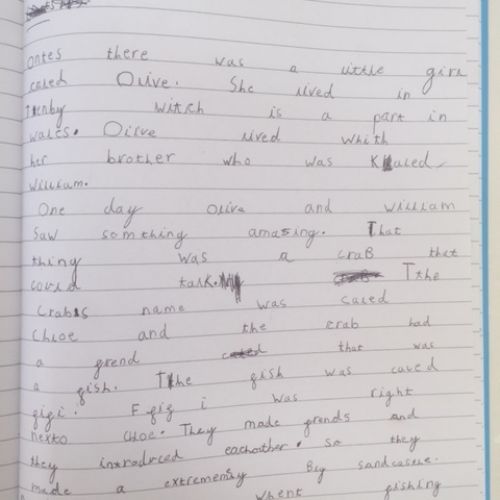 ontes there was a little girl
caled Olive. She lived in
Tenby witch is a part in
wales. Oilve lived whith
her brother who was Kaled
william.
One day Olive and william
Saw somthing amazing. That
thing was a craB that
could talk. The
crabs name was caled
Chloe and the crab had
a frend that was
a fish. The fish was caled
fifi. Fifi was right
nexto Chloe. They made frends and
they introdrced eachother. So they
made a extrememly Big sandcastle.
whent fishing